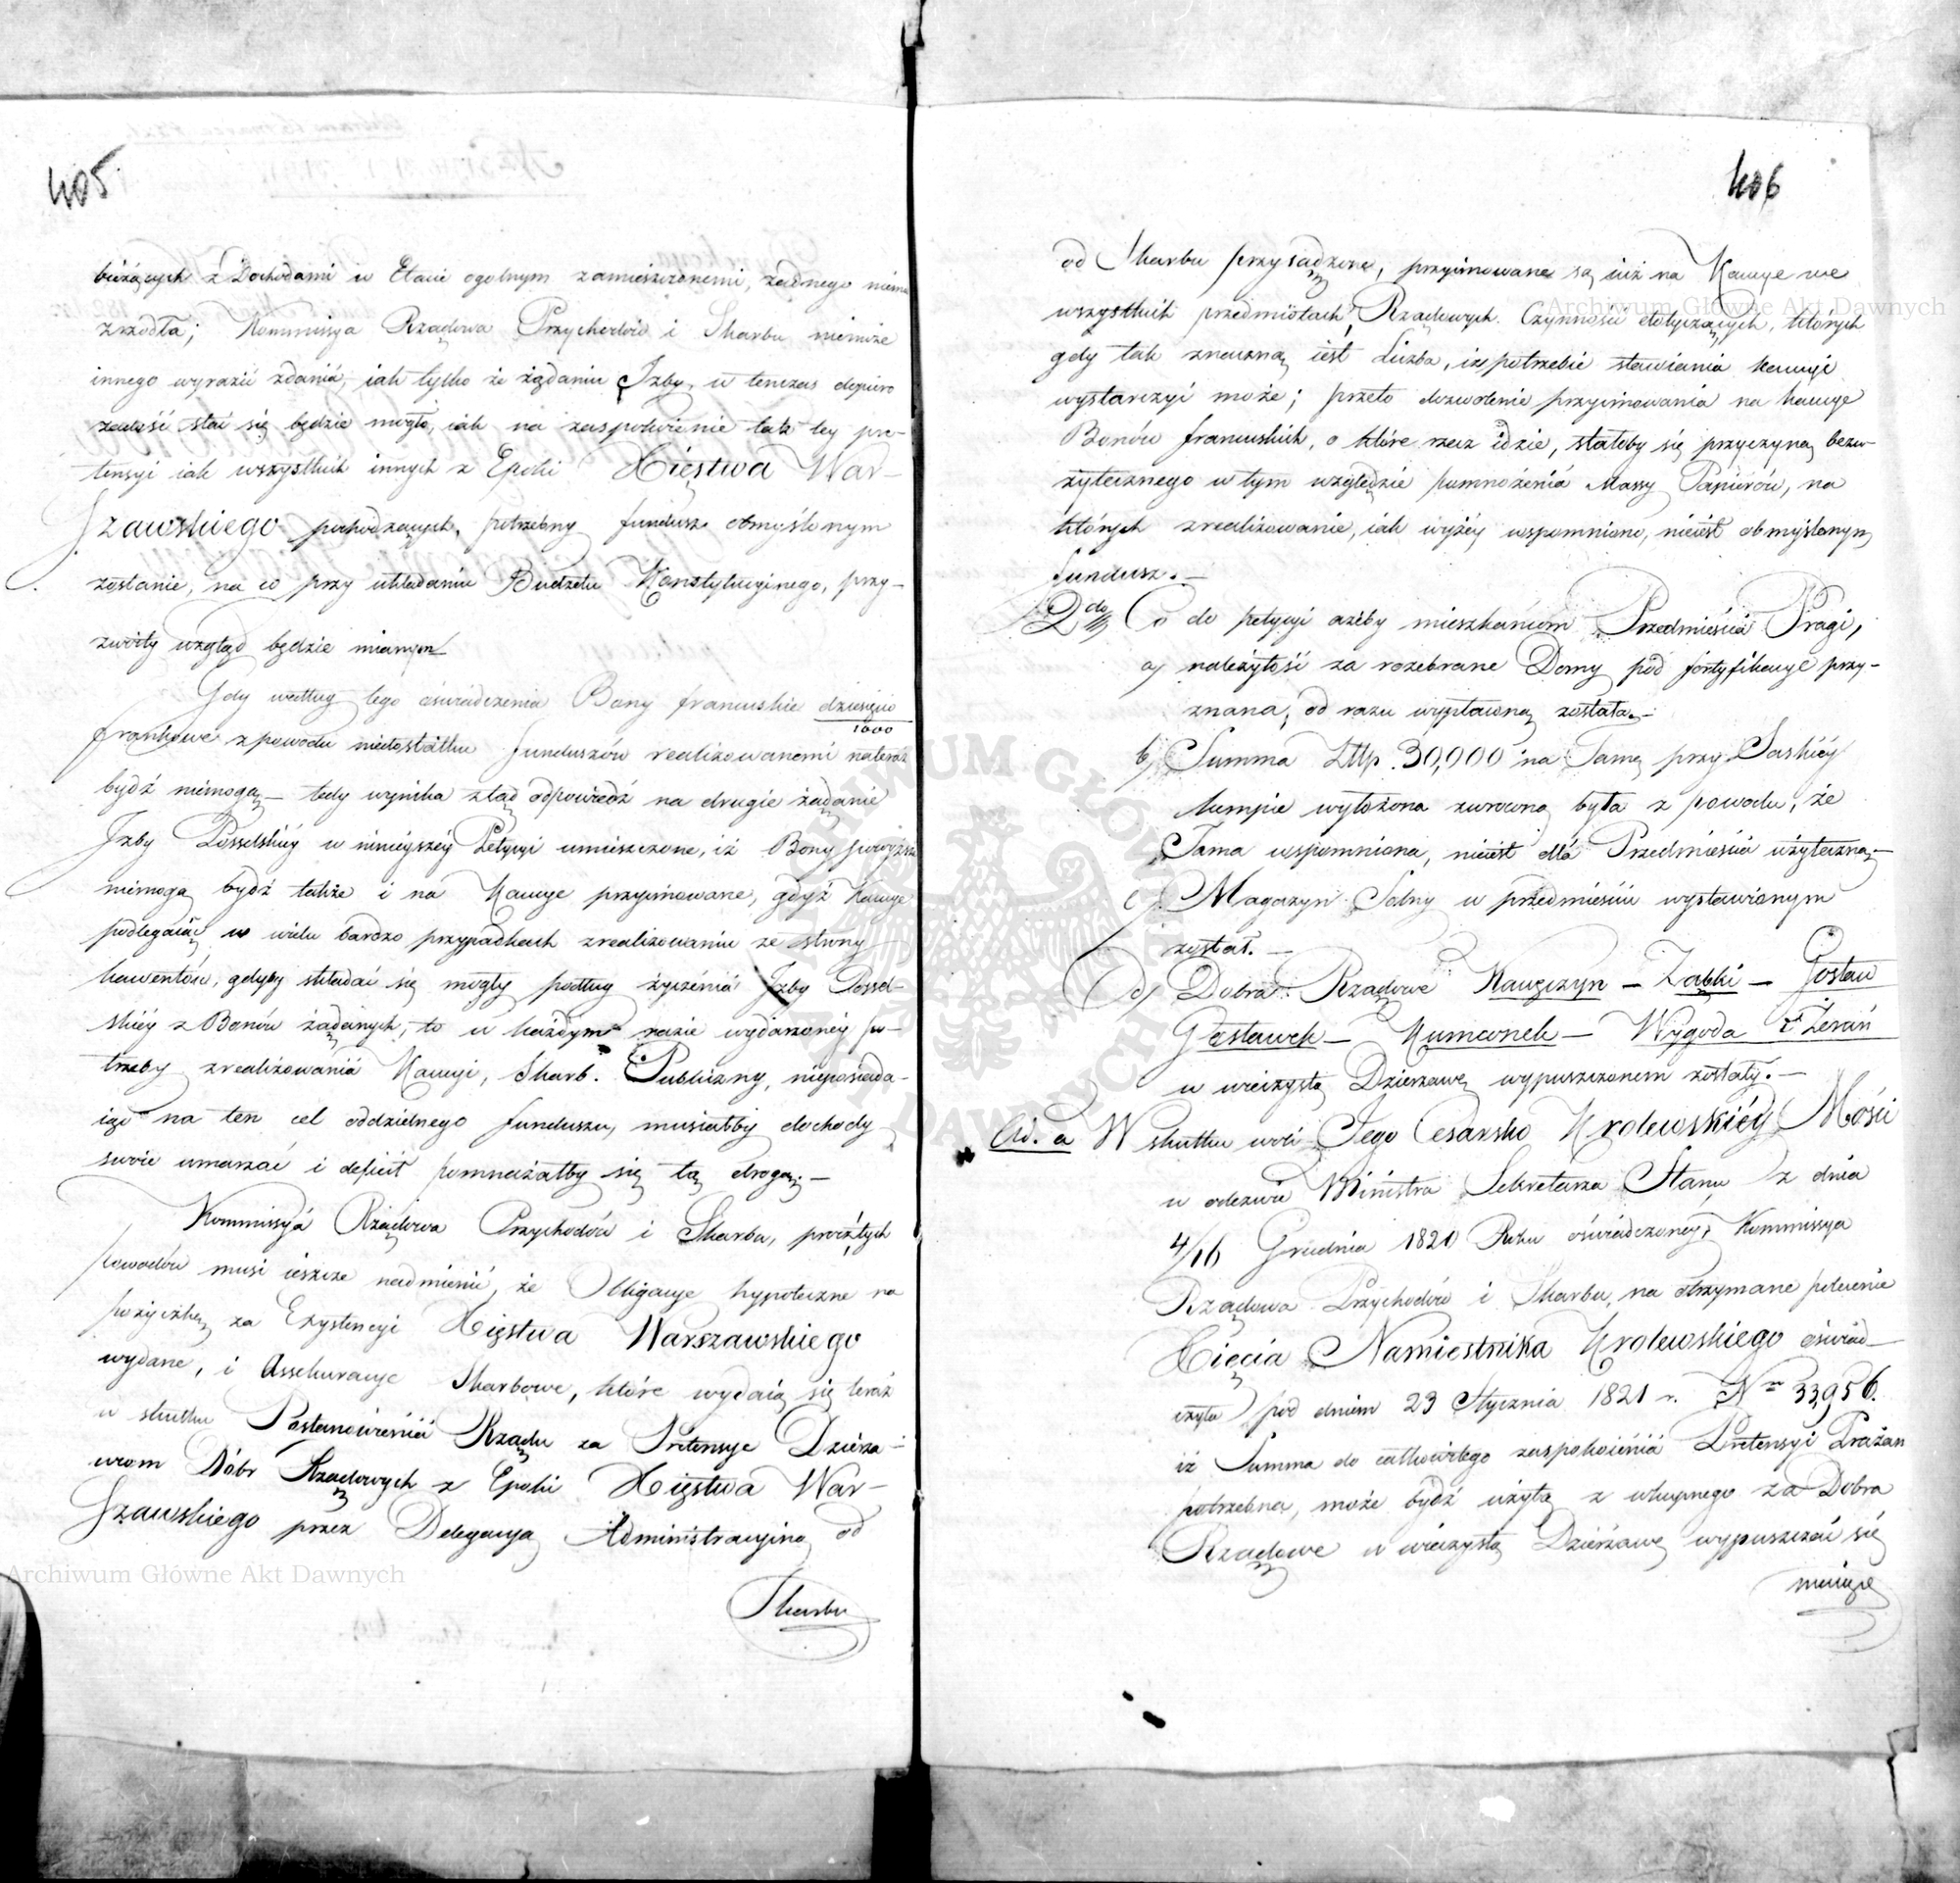 405
bieżących z Dochodami w Etacie ogolnym zamieszczonemi, żadnego niema
zrzodła; Kommissya Rządowa Przychodów i Skarbu niemoże
innego wyrazić zdania, iak tylko że żądaniu Izby, w tenczas dopiero
zadość stać się będzie mogło, iak na zaspokoienie tak tey pre-
tensyi iak wszystkich innych z Epoki Xięstwa War-
szawskiego pochodzących, potrzebny fundusz obmyślonym
zostanie, na co przy układaniu Budżetu Konstytucyinego, przy-
zwoity wzgląd będzie mianym
Gdy według tego oświadczenia Bony francuskie dziesięcio
1000
frankowe z powodu niedostatku funduszów realizowanemi nateraz
bydź niemogą – tedy wynika ztąd odpowiedź na drugie żądanie
Izby Posselskiéy w ninieyszéy Petycyi umieszczone, iż Bony powyższe
niemogą bydź także i na Kaucye przyimowane, gdyż Kaucye
podlegaiąc w wielu bardzo przypadkach zrealizowaniu ze strony
kawentów, gdyby składać się mogły podług życzenia Izby Possel-
skiéy z Bonów żądanych, to w każdym razie wydarzonéy po-
trzeby zrealizowania Kaucyi, Skarb Publiczny, nieposiada-
iąc na ten cel oddzielnego funduszu, musiałby dochody
swoie umarzać i deficit pomnażałby się tą drogą. –
Kommissya Rządowa Przychodów i Skarbu, prócz tych
powodów musi ieszcze nadmienić, że Obligacye hypoteczne na
pożyczkę za Exystencyi Xięstwa Warszawskiego
wydane, i Assekuracye Skarbowe, które wydaią się teraz
w skutku Postanowienia Rządu za Pretensye Dzierża-
wcom Dóbr Rządowych z Epoki Xięstwa War-
szawskiego przez Delegacyą Administracyiną od
Skarbu
406
od Skarbu przysądzone, przyimowane są iuż na Kaucye we
wszystkich przedmiotach Rządowych Czynności dotyczących, których
gdy tak znaczna iest Liczba, iż potrzebie stawiania kaucyi
wystarczyć może; przeto dozwolenie przyimowania na kaucye
Bonów francuskich, o które rzecz idzie, stałoby się przyczyną bezu-
żytecznego w tym względzie pomnożenia Massy Papierów, na
których zrealizowanie, iak wyżéy wspomniono, nieiest obmyślonym
fundusz. –
2do Co do petycyi ażeby mieszkańcom Przedmieścia Pragi,
a/ należytość za rozebrane Domy pod fortyfikacye przy-
znana, od razu wypłaconą została. –
b/ Summa Złtp. 30,000 na Tamę przy Saskiéy
kempie wyłożona zwroconą była z powodu, że
Tama wspomniona, nieiest dla Przedmieścia użyteczną –
c/ Magazyn Solny w przedmieściu wystawionym
został. –
d/ Dobra Rządowe Kawęczyn – Ząbki – Gocław
Gocławek – Kamionek – Wygoda i Żerań
w wieczystą Dzierżawę wypuszczonem zostały. –
Ad. a W skutku woli Jego Cesarsko Krolewskiéy Mości
w odezwie Ministra Sekretarza Stanu z dnia
4/16 Grudnia 1820 Roku oświadczonéy, Kommissya
Rządowa Przychodów i Skarbu, na otrzymane polecenie
Xięcia Namiestnika Krolewskiego oświad-
czyła pod dniem 23 Stycznia 1821 r. Nr 33,956.
iż Summa do całkowitego zaspokoienia Pretensyi Prażan
potrzebna, może bydź użytą z wkupnego za Dobra
Rządowe w wieczystą Dzierżawę wypuszczać się
maiące
Archiwum Główne Akt Dawnych
Archiwum Główne Akt Dawnych
ARCHIWUM GŁÓWNE AKT DAWNYCH